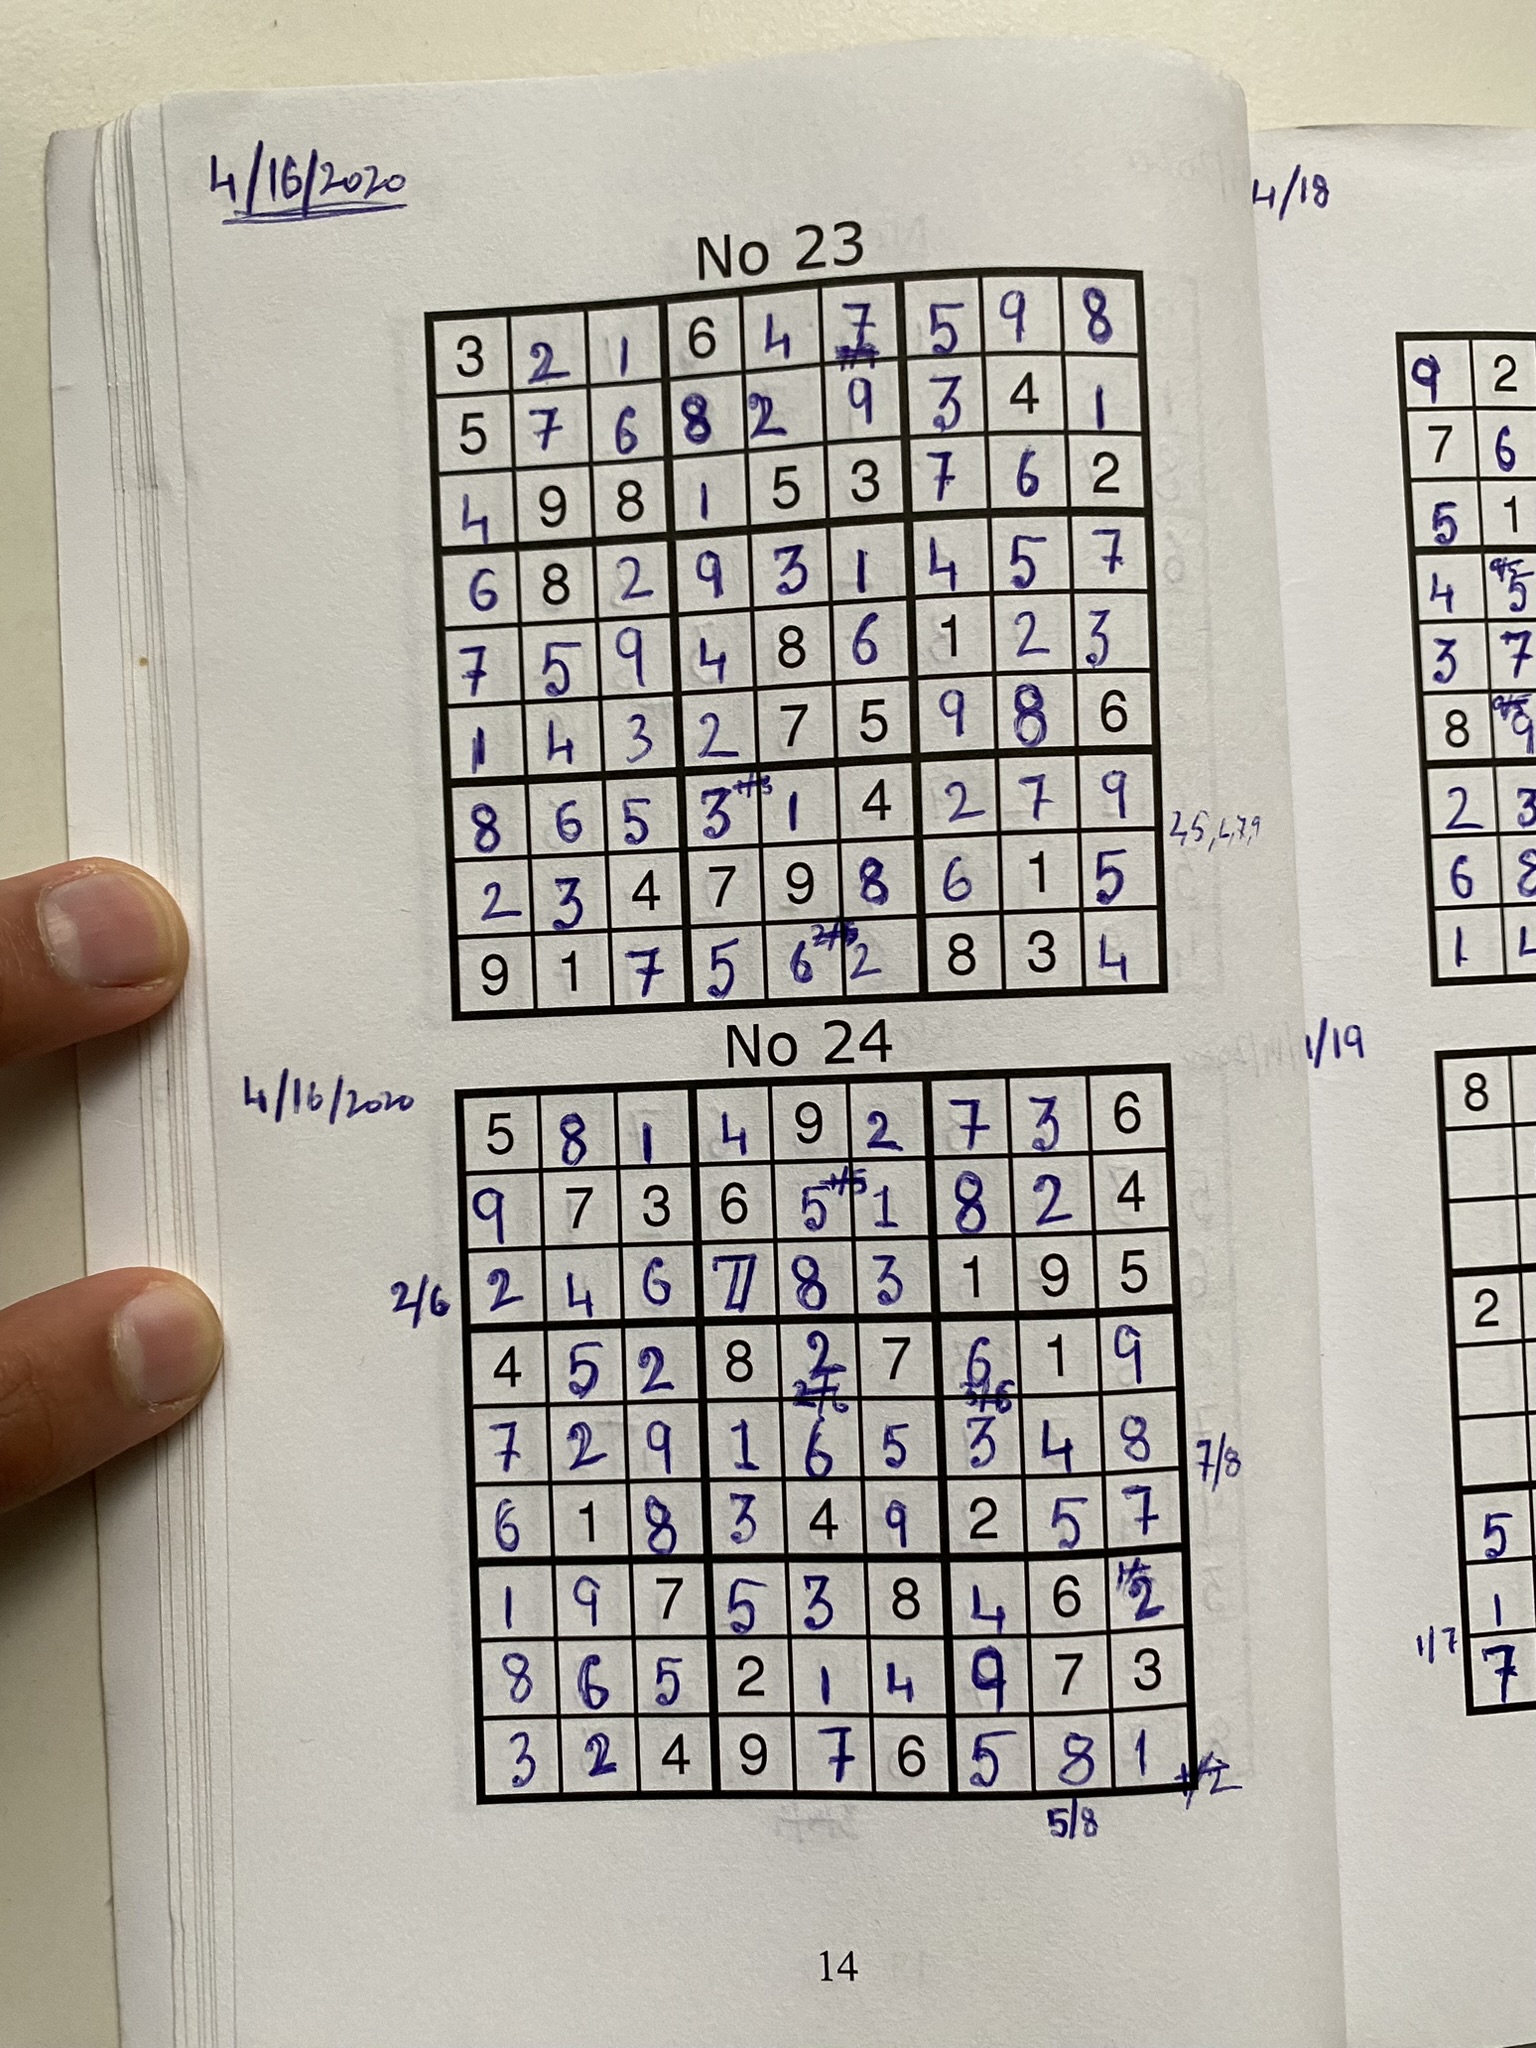 4/16/2020
4/18
No 23
3 2 1 6 4 7 5 9 8
5 7 6 8 2 9 3 4 1
4 9 8 1 5 3 7 6 2
6 8 2 9 3 1 4 5 7
7 5 9 4 8 6 1 2 3
1 4 3 2 7 5 9 8 6
8 6 5 3 1 4 2 7 9
2 3 4 7 9 8 6 1 5
9 1 7 5 6 2 8 3 4
9 2
7 6
5 1
4 5
3 7
8 9
2 3
6 8
1 4
No 24
4/16/2020
1/19
5 8 1 4 9 2 7 3 6
9 7 3 6 5 1 8 2 4
2/6 2 4 6 7 8 3 1 9 5
4 5 2 8 2 7 6 1 9
7 2 9 1 6 5 3 4 8 7/8
6 1 8 3 4 9 2 5 7
1 9 7 5 3 8 4 6 2
8 6 5 2 1 4 9 7 3
3 2 4 9 7 6 5 8 1
5/8
8
2
5
1
1/7 7
14